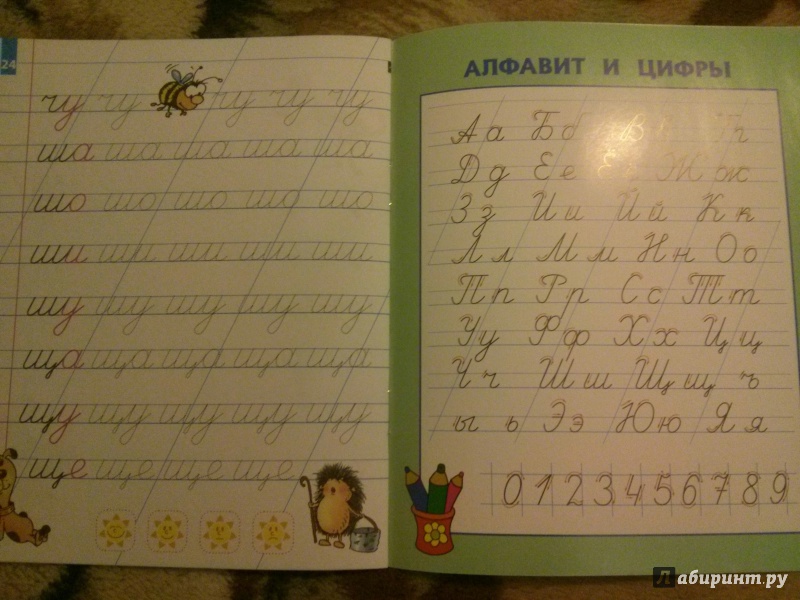 24
чу чу чу чу чу
ша ша ша ша ша ша
шо шо шо шо шо шо
ши ши ши ши ши ши
шу шу шу шу шу
ща ща ща ща ща
щу щу щу щу щу
ще ще ще ще
АЛФАВИТ И ЦИФРЫ
Аа Бб Вв Гг
Дд Ее Ёё Жж
Зз Ии Йй Кк
Лл Мм Нн Оо
Пп Рр Сс Тт
Уу Фф Хх Цц
Чч Шш Щщ ъ
ы ь Ээ Юю Яя
0 1 2 3 4 5 6 7 8 9
Лабиринт.ру